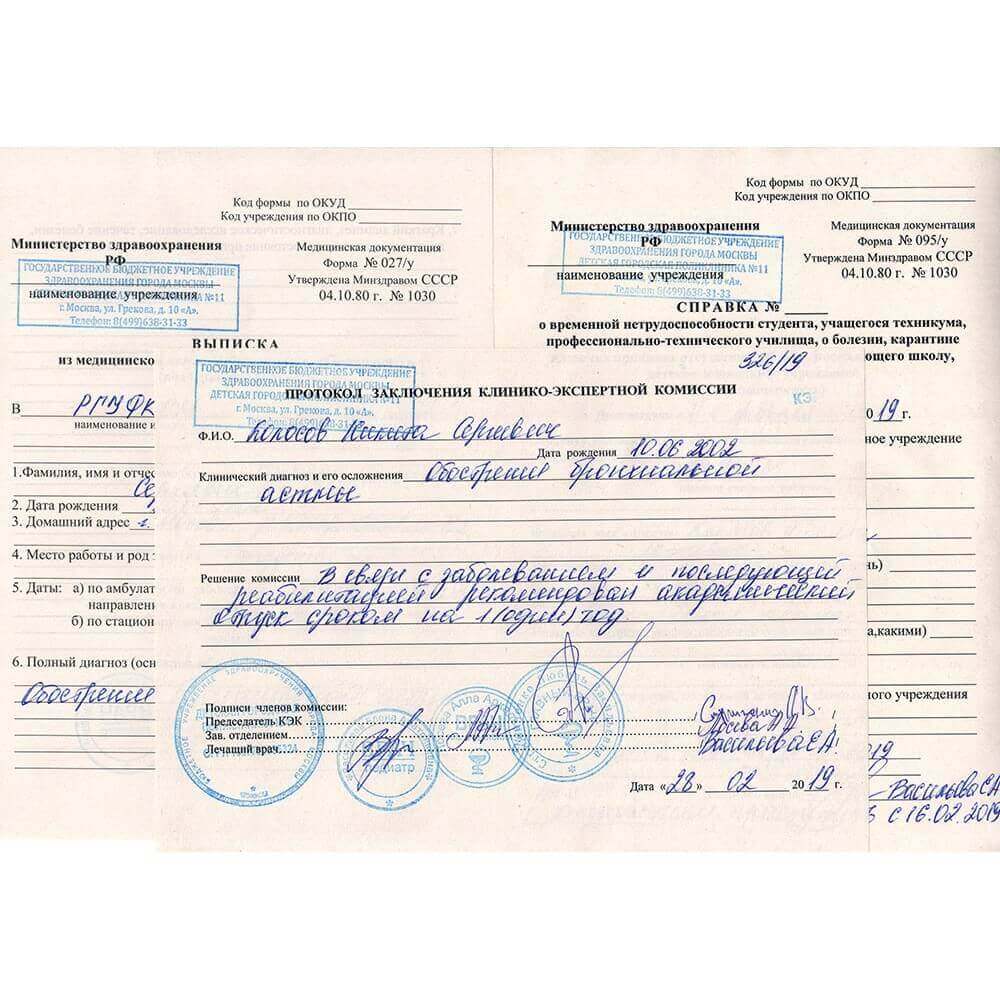 Код формы по ОКУД
Код учреждения по ОКПО
Министерство здравоохранения
РФ
ГОСУДАРСТВЕННОЕ БЮДЖЕТНОЕ УЧРЕЖДЕНИЕ
ЗДРАВООХРАНЕНИЯ ГОРОДА МОСКВЫ
наименование учреждения
№11
г. Москва, ул. Грекова, д. 10 «А».
Телефон: 8(499)638-31-33
Медицинская документация
Форма № 027/у
Утверждена Минздравом СССР
04.10.80 г. № 1030
ВЫПИСКА
из медицинско
В РГУФК
наименование и
1.Фамилия, имя и отчес
Се
2. Дата рождения
3. Домашний адрес г.
4. Место работы и род
5. Даты: а) по амбулат
направлен
б) по стацион
6. Полный диагноз (осн
Обострение
Код формы по ОКУД
Код учреждения по ОКПО
Министерство здравоохранения
РФ
ГОСУДАРСТВЕННОЕ БЮДЖЕТНОЕ УЧРЕЖДЕНИЕ
ЗДРАВООХРАНЕНИЯ ГОРОДА МОСКВЫ
ДЕТСКАЯ ГОРОДСКАЯ ПОЛИКЛИНИКА №11
наименование учреждения
Телефон: 8(499)638-31-33
Медицинская документация
Форма № 095/у
Утверждена Минздравом СССР
04.10.80 г. № 1030
СПРАВКА №
о временной нетрудоспособности студента, учащегося техникума,
профессионально-технического училища, о болезни, карантине
ющего школу,
019 г.
ное учреждение
нь)
а,какими)
ного учреждения
19
Васильева СА
с 16.02.2019
ГОСУДАРСТВЕННОЕ БЮДЖЕТНОЕ УЧРЕЖДЕНИЕ
ЗДРАВООХРАНЕНИЯ ГОРОДА МОСКВЫ
ДЕТСКАЯ ГОРОДСКАЯ ПОЛИКЛИНИКА №11
г. Москва, ул. Грекова, д. 10 «А».
Телефон: 8(499)638-31-33
326/19
ПРОТОКОЛ ЗАКЛЮЧЕНИЯ КЛИНИКО-ЭКСПЕРТНОЙ КОМИССИИ
КЭ
Ф.И.О. Колосов Никита Сергеевич
Дата рождения 10.06.2002
Клинический диагноз и его осложнения Обострение бронхиальной
астмы
Решение комиссии В связи с заболеванием и последующей
реабилитацией рекомендован академический
отпуск сроком на 1(один) год
Подписи членов комиссии:
Председатель КЭК
Зав. отделением
Лечащий врач
Васильева СА
Дата «28» 02 2019 г.